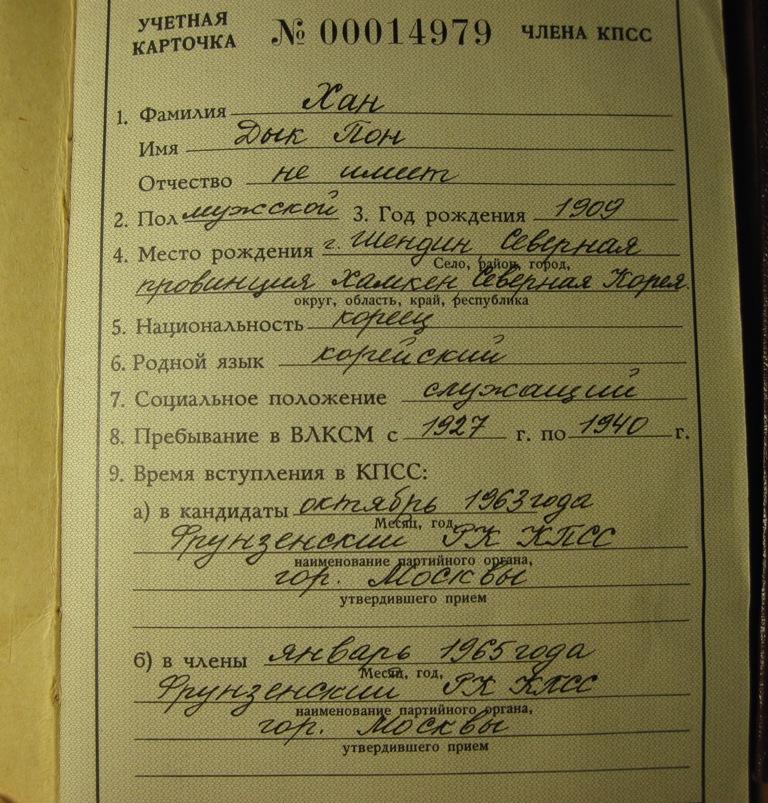 УЧЕТНАЯ КАРТОЧКА № 00014979 ЧЛЕНА КПСС
1. Фамилия Хан
Имя Дык Пон
Отчество не имеет
2. Пол мужской 3. Год рождения 1909
4. Место рождения г. Шендин Северная
Село, район, город,
провинция Хамкен Северная Корея.
округ, область, край, республика
5. Национальность кореец
6. Родной язык корейский
7. Социальное положение служащий
8. Пребывание в ВЛКСМ с 1927 г. по 1940 г.
9. Время вступления в КПСС:
а) в кандидаты октябрь 1963 года
Месяц, год,
Фрунзенский РК КПСС
наименование партийного органа,
гор. Москвы
утвердившего прием
б) в члены январь 1965 года
Месяц, год,
Фрунзенский РК КПСС
наименование партийного органа,
гор. Москвы
утвердившего прием